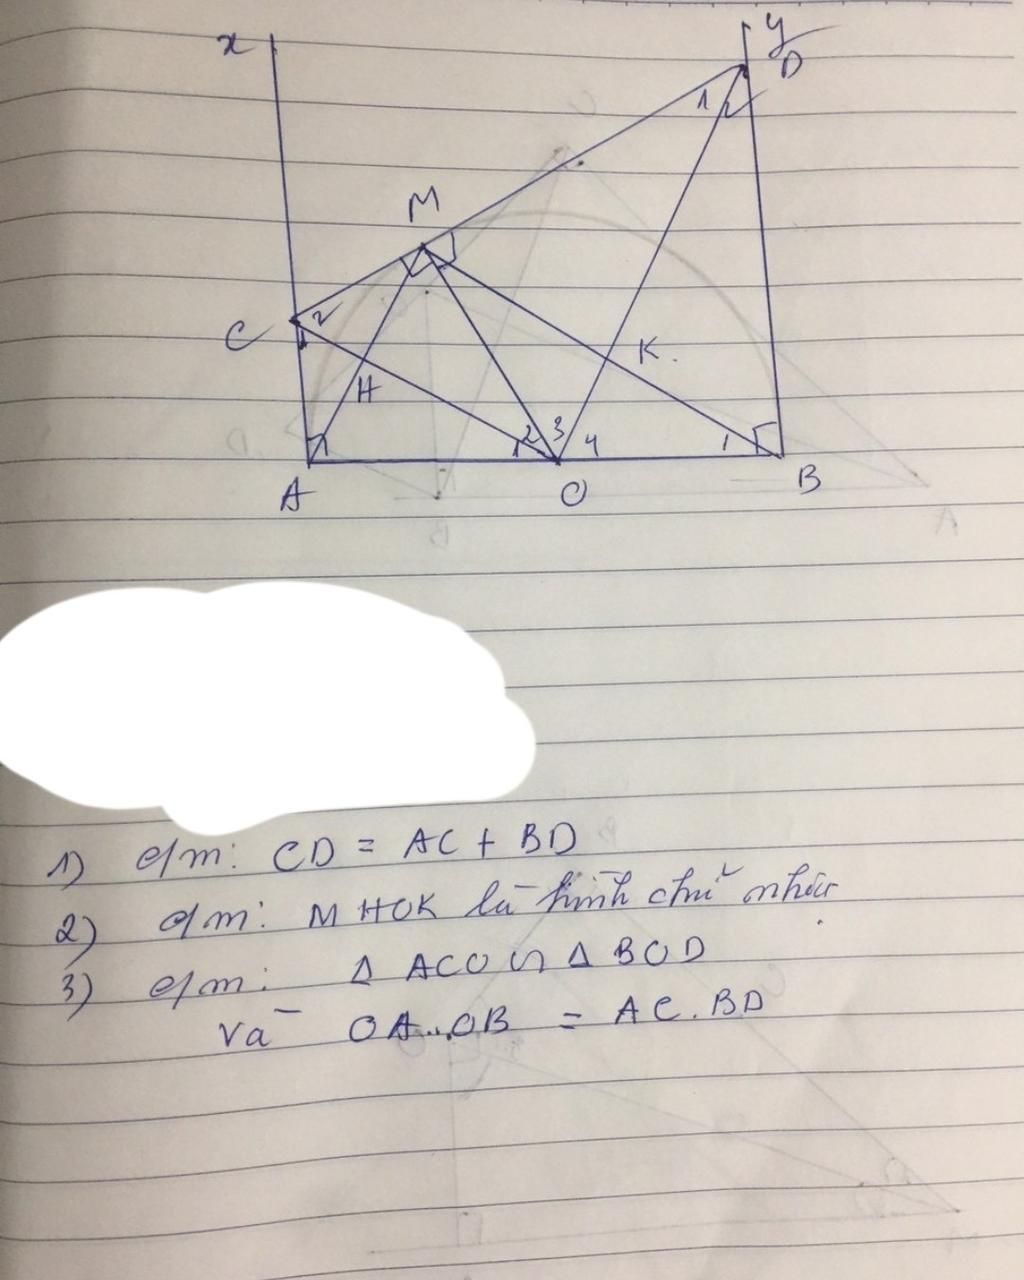 x
y
D
1
2
M
C
2
1
K.
H
2
3
1
4
1
1
A
O
B
1) c/m: CD = AC + BD
2) c/m: MHOK là hình chữ nhật
3) c/m: Δ ACO ∽ Δ BOD
Và OA..OB = AC.BD